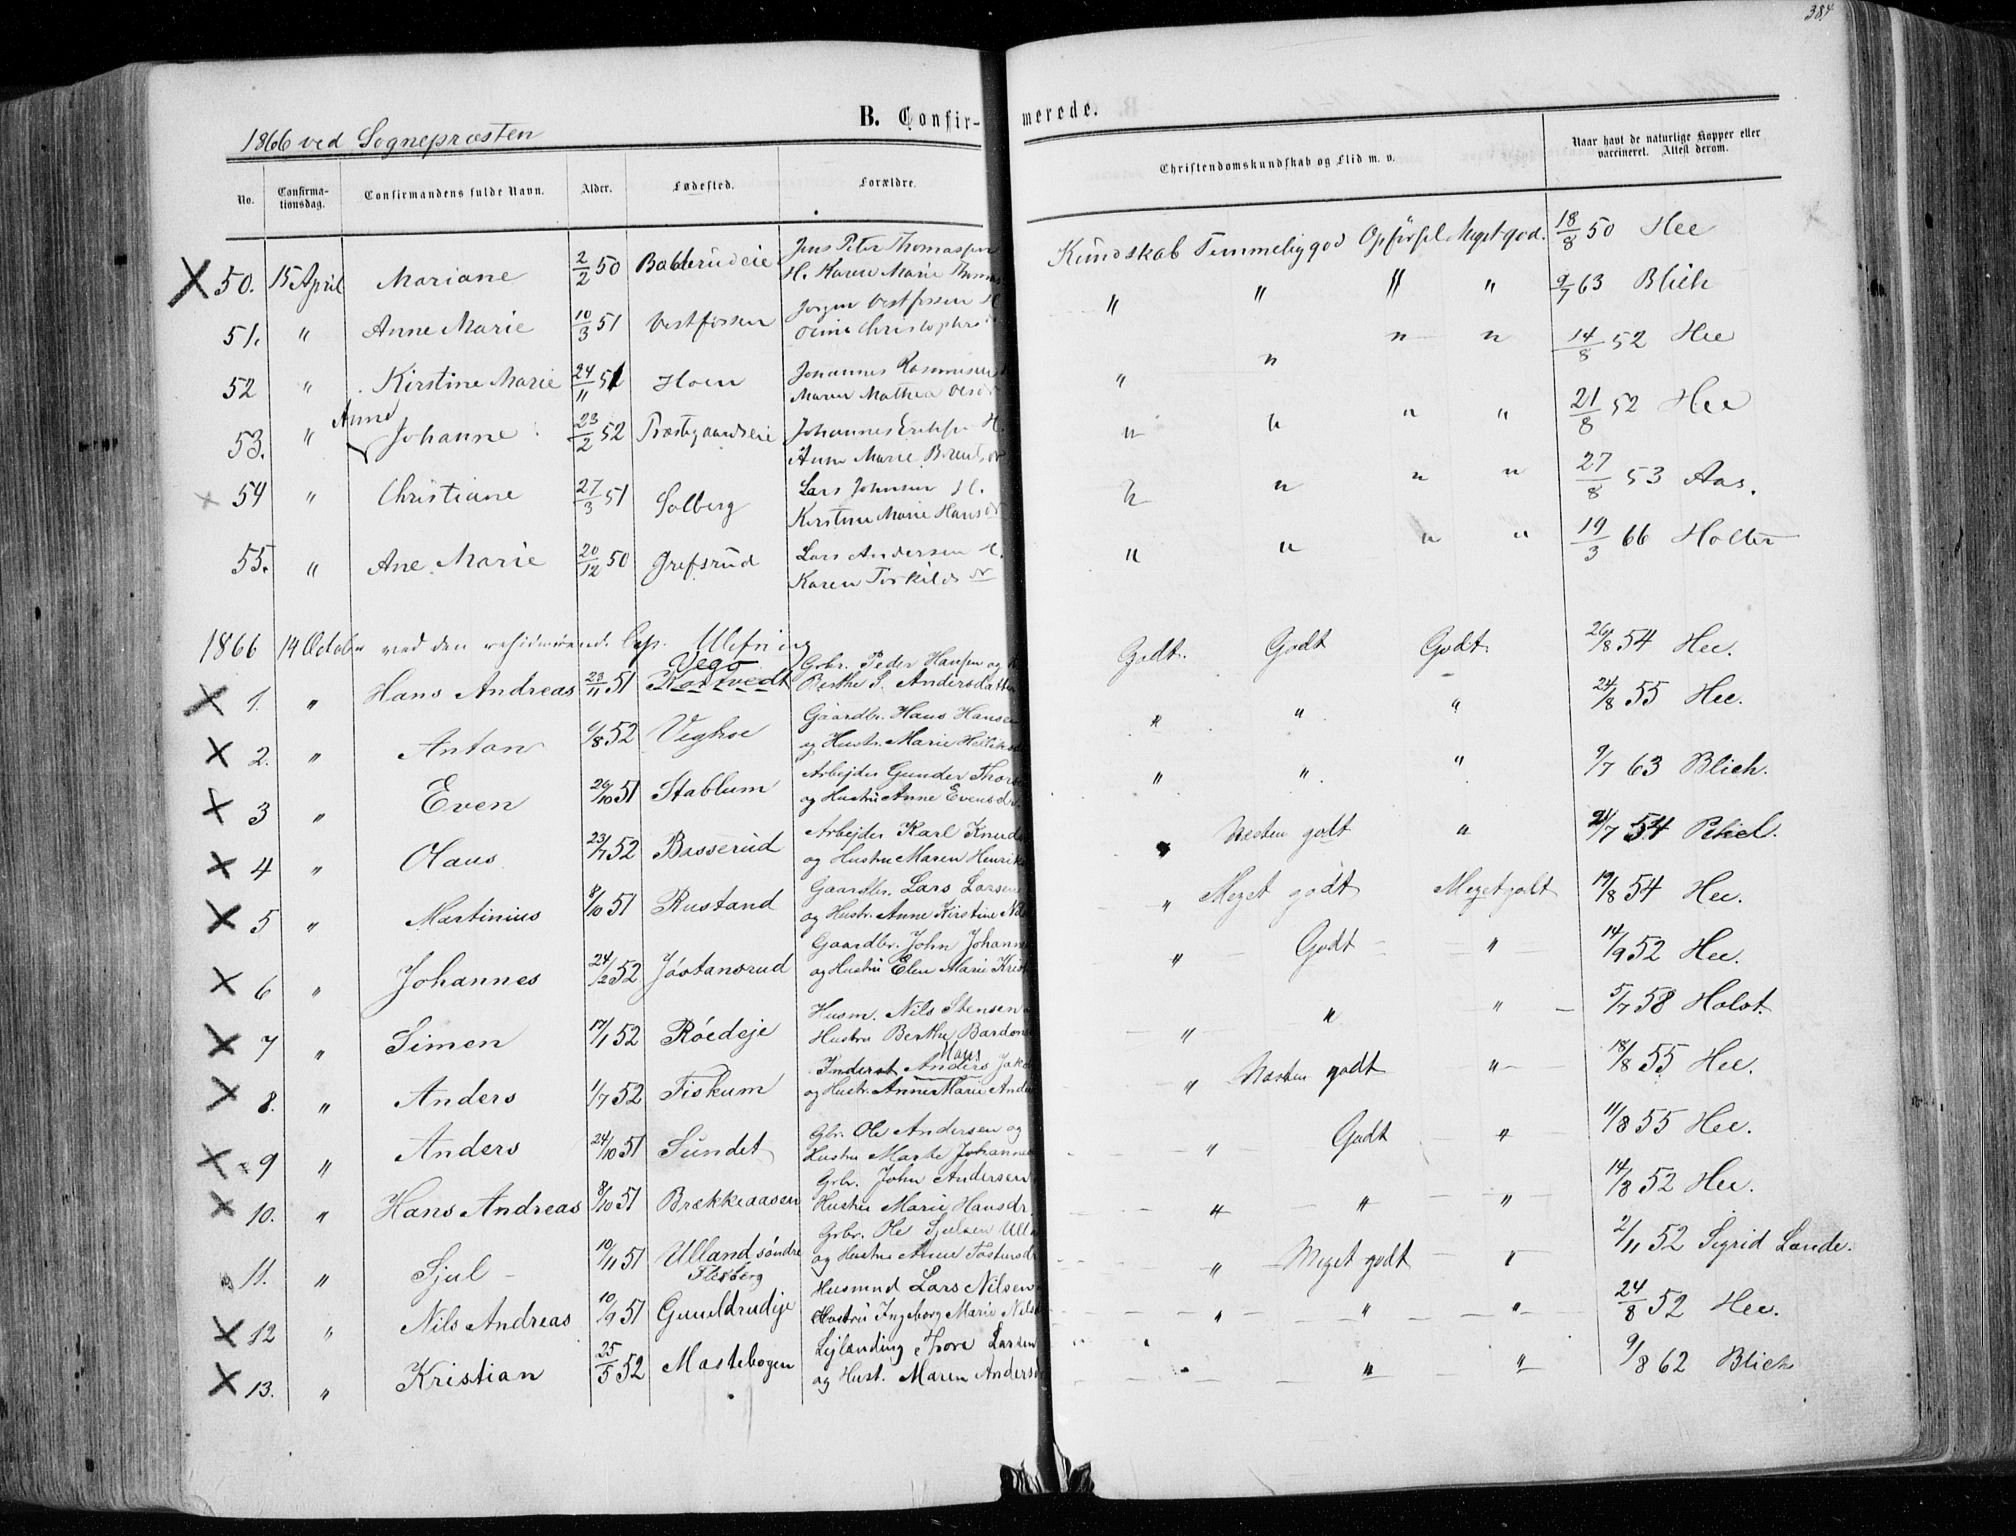 384
B. Confirmerede.
1866 ved Sognepræsten
No. Confirmationsdag. Confirmandens fulde Navn. Alder. Fødested. Forældre. Christendomskundskab og Flid m. v. Naar havt de naturlige Kopper eller vaccineret. Attest derom.
50. 15 April Mariane 2/2 50 Jens Peter Thomassen H. Karen Marie Kundskab Temmelig god Opførsel Meget god. 18/8 50 Hee
51. " Anne Marie 10/3 51 Vestfossen Jørgen Vestfossen H. " " " " 9/7 63 Blich
52 " Kirstine Marie 24/11 51 Hoen Johannes Rasmussen Maren Mathea " " " " 14/8 52 Hee
53. " Anne Johanne 23/2 52 Præstegaardseie Johannes H. Anne Marie " " " " 21/8 52 Hee
54 " Christiane 27/3 51 Solberg Lars Johnsen H. Kirstine Marie Hansdr " " " " 27/8 53 Aas.
55. " Ane Marie 20/12 50 Grefsrud Lars Andersen H. Karen Torkildsdr " " " " 19/3 66 Holter
1866 14 Octobr ved den Cap. Ulefning
1. " Hans Andreas 23/11 51 Vego Gbr. Peder Hansen og Berthe S. Andersdatter Godt. Godt Godt 26/8 54 Hee.
2. " Anton 6/8 52 Veghoe Gaardbr. Hans Hansen og Hustr. Marie " " " 24/8 55 Hee.
3 " Even 20/10 51 Stablum Arbejder Gunder og Hustru Anne Evensdr. " " " 9/7 63 Blich.
4 " Olaus 23/7 52 Basserud Arbejder Karl Knuds og Hustru Maren Henrik " Næsten godt " 21/7 54
5 " Martinius 8/10 51 Rustand Gaardbr. Lars Larsen og Hustr. Anne Kirstine " Meget godt Meget godt 19/8 54 Hee.
6 " Johannes 24/2 52 Jóstansrud Gaardbr. John Johann og Hustru Elen Marie Krist " Godt " 14/9 52 Hee.
7 " Simen 17/1 52 Róedeje Husm. Nils Stensen Hustru Berthe Bardons " " " 5/7 58 Holst.
8. " Anders 1/7 52 Fiskum Inderst Anders Hans Jak og Hustr. Anne Marie Ande " Næsten godt " 18/8 55 Hee.
9 " Anders 24/10 51 Sundet Gbr. Ole Andersen og Hustru Marte Johanne " Godt " 11/8 55 Hee.
10. " Hans Andreas 8/10 51 Brækkeaasen Gbr. John Andersen Hustru Marie Hansdr. " " " 14/8 52 Hee.
11. " Sjul 10/11 51 Ulland søndre Flesberg Grbr. Ole Sjulsen Ull og Hustru Anne " Meget godt " 2/11 52 Sigrid Lande.
12 " Nils Andreas 10/9 51 Gunildrudeje Husmnd Lars Nilsen Hustru Ingeborg Marie Nils " " " 24/8 52 Hee.
13. " Kristian 25/5 52 Mastebogen Lejlænding Thore Larsen og Hust. Maren Anders " " 9/8 62 Blich